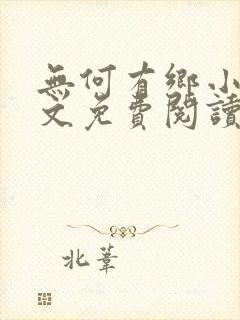 無何有鄉小
文免費閱讀
北葦